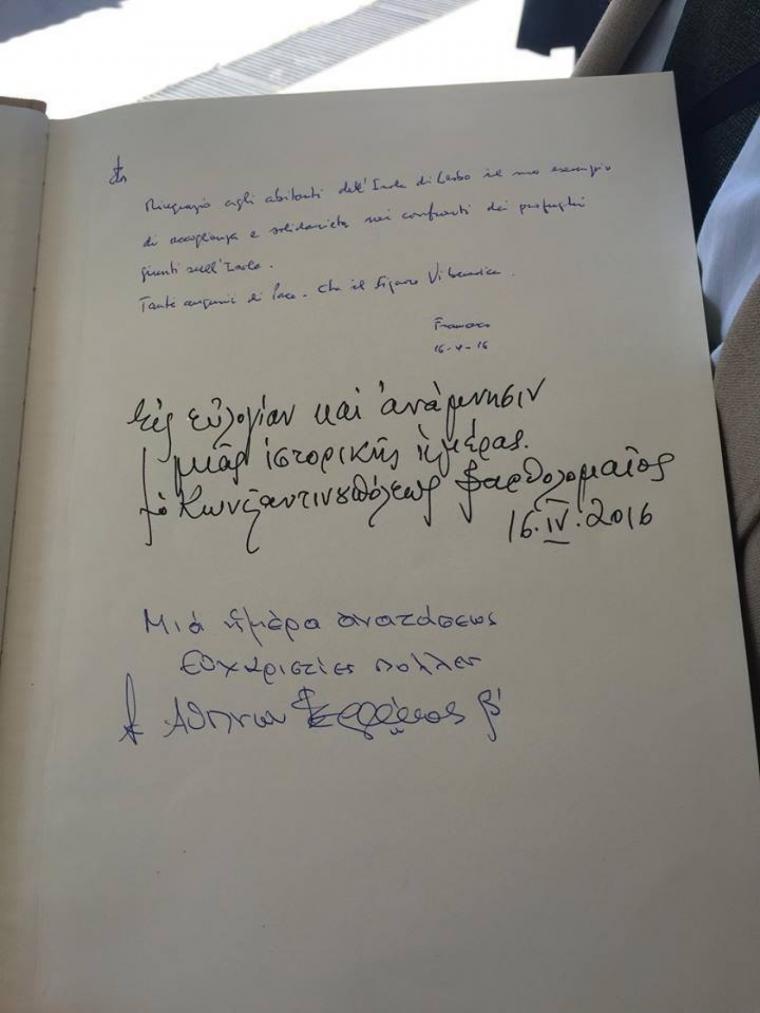 Ringrazio agli abitanti dell'Isola di Lesbo il suo esempio
di accoglienza e solidarietà nei confronti dei profughi
giunti sull'Isola.
Tanti auguri di Pace. Che il Signore Vi benedica.
Francesco
16-4-16
Εἰς εὐλογίαν καί ἀνάμνησιν
μιᾶς ἱστορικῆς ἡμέρας.
Κωνσταντινουπόλεως Βαρθολομαῖος
16.IV.2016
Μιά ἡμέρα αναστάσεως
Ευχαριστίες πολλές
Αθηνών Ιερώνυμος β'